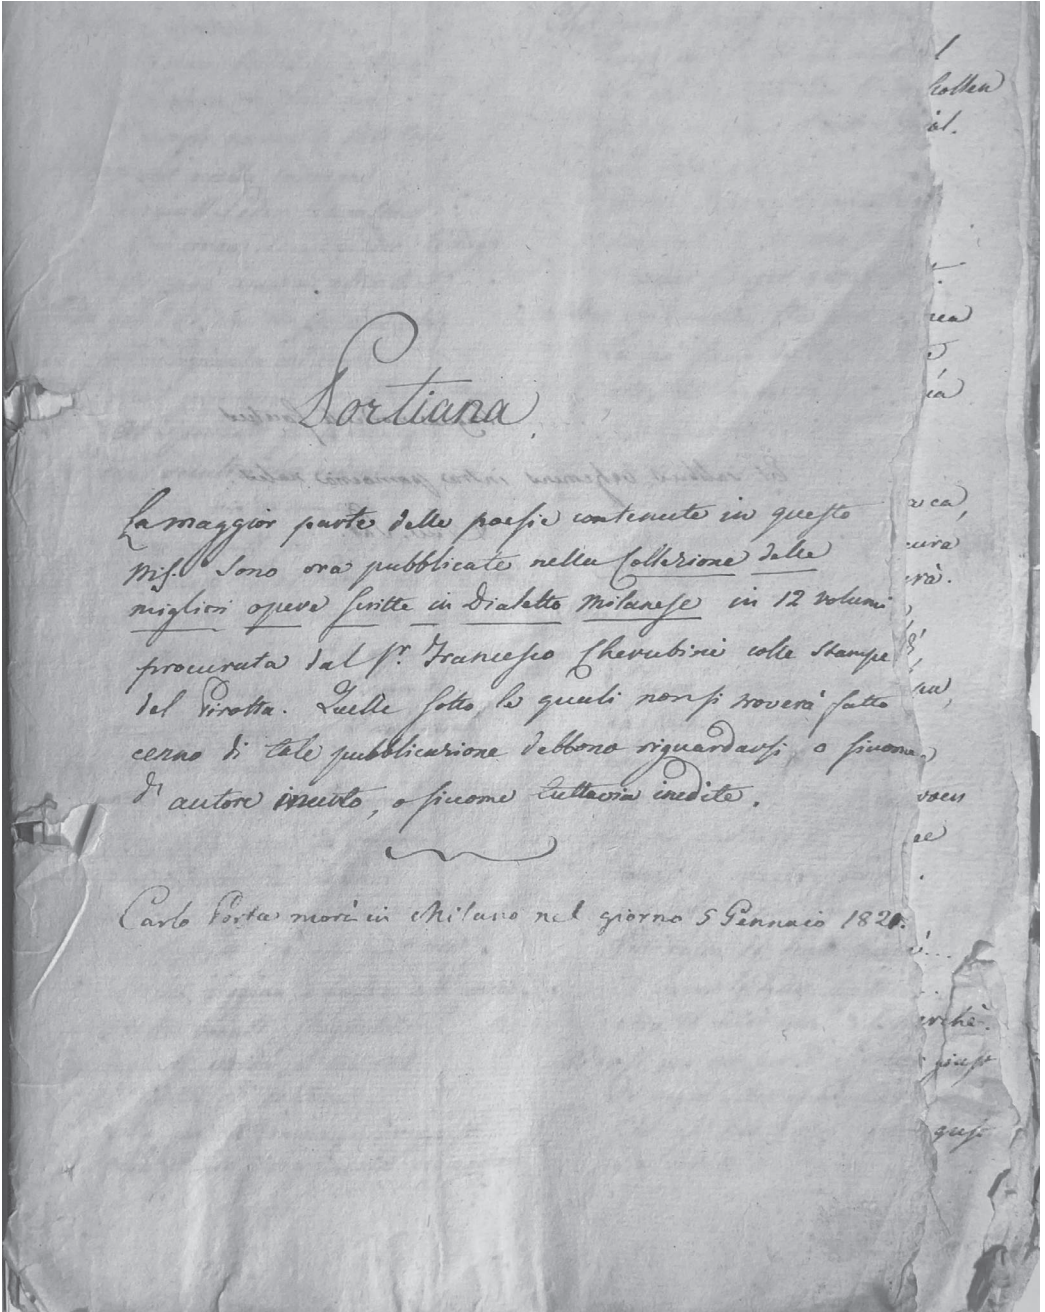 Portiana.
La maggior parte delle poesie contenute in questo
Ms. sono ora pubblicate nella Collezione delle
migliori opere scritte in Dialetto Milanese in 12 volumi
procurata dal Sr. Francesco Cherubini colle stampe
del Pirotta. Quelle sotto le quali non si troverà fatto
cenno di tale pubblicazione debbono riguardarsi, o siccome
d'autore incerto, o siccome tuttavia inedite.
Carlo Porta morì in Milano nel giorno 5 Gennaio 1821.